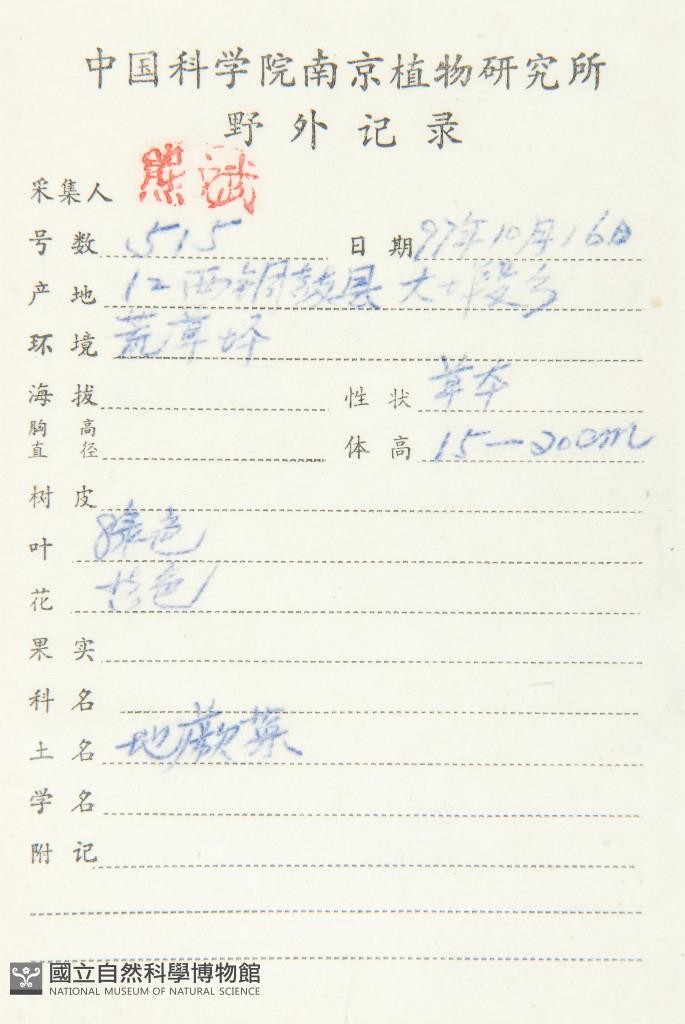 中国科学院南京植物研究所
野外记录
采集人 熊
号数 515 日期 97年10月16日
产地 江西铜鼓县大塅段乡
环境 荒草坪
海拔 性状 草本
胸高直径 体高 15—20cm
树皮
叶 绿色
花 色
果实
科名
土名 地蕨菜
学名
附记
國立自然科學博物館
NATIONAL MUSEUM OF NATURAL SCIENCE